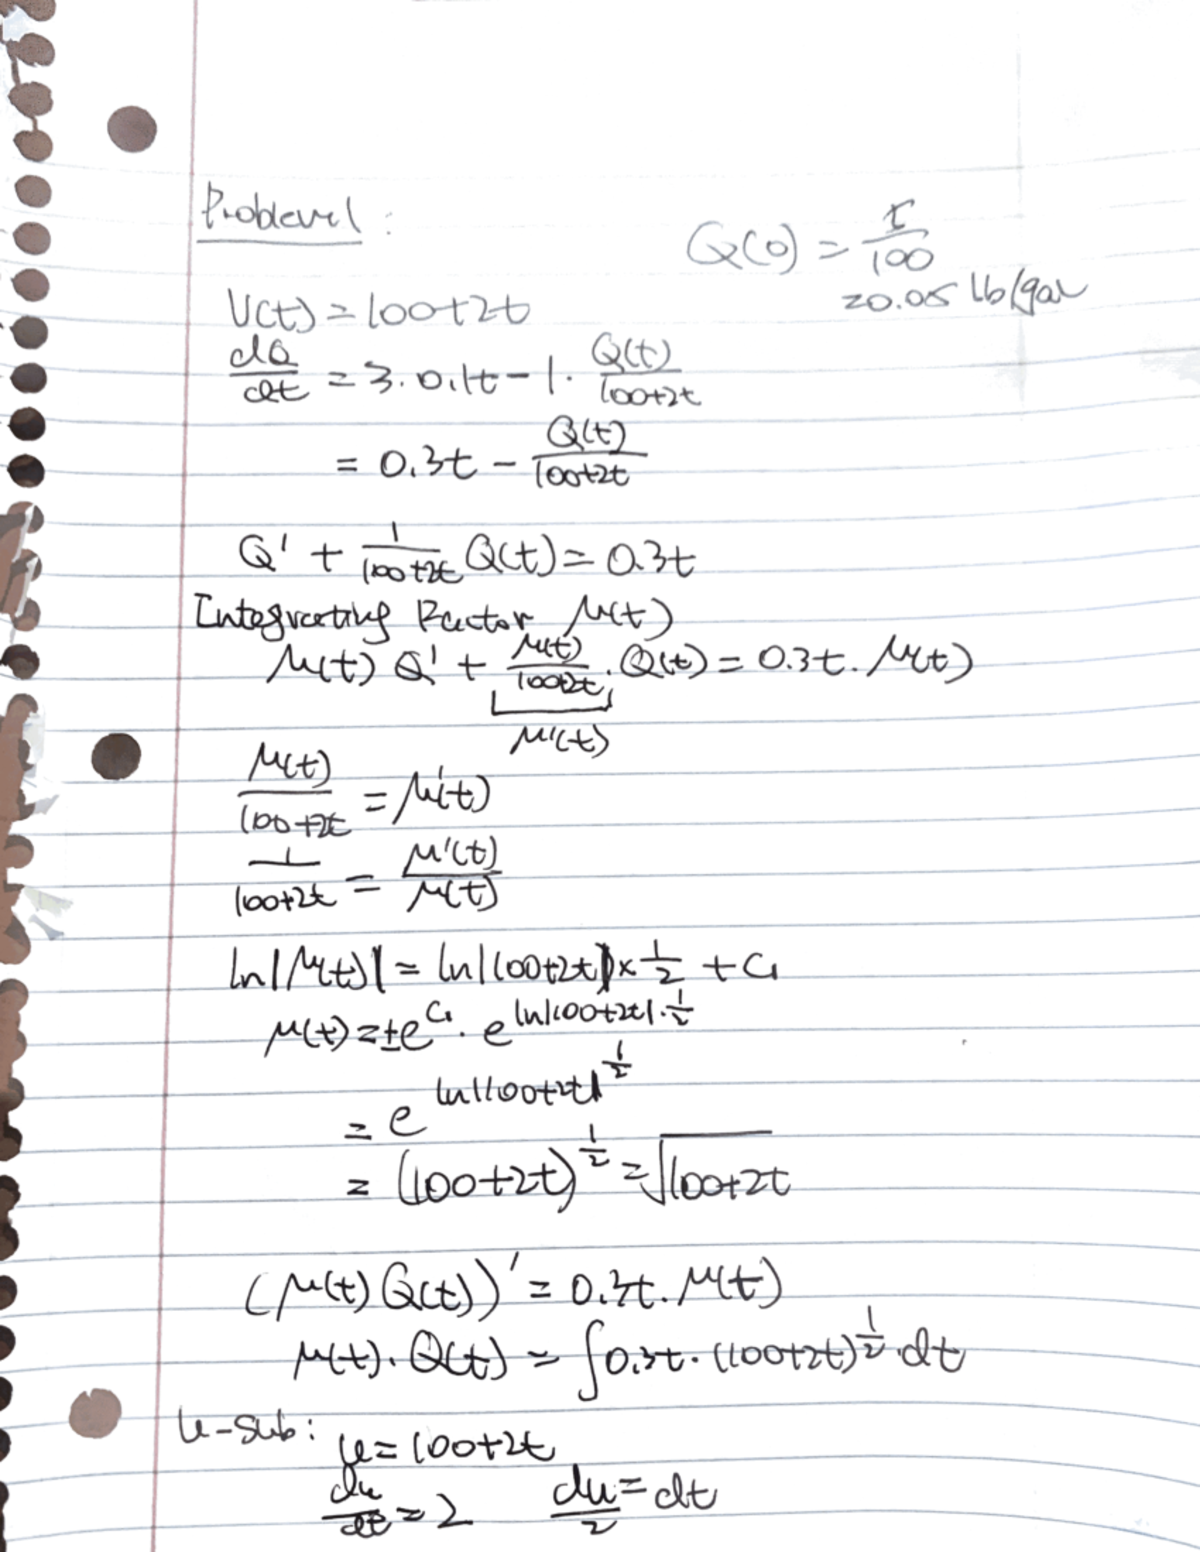 Problem 1 :
Q(0) = 5/100
= 0.05 lb/gal
V(t) = 100+2t
dQ/dt = 3 · 0.1t - 1 · Q(t)/(100+2t)
= 0.3t - Q(t)/(100+2t)
Q' + 1/(100+2t) Q(t) = 0.3t
Integrating Factor μ(t)
μ(t) Q' + μ(t)/(100+2t) · Q(t) = 0.3t · μ(t)
μ'(t)
μ(t)/(100+2t) = μ'(t)
1/(100+2t) = μ'(t)/μ(t)
ln|μ(t)| = ln|100+2t| × 1/2 + C₁
μ(t) = ±e^C₁ · e^(ln|100+2t| · 1/2)
= e^(ln|100+2t|^(1/2))
= (100+2t)^(1/2) = √100+2t
(μ(t) Q(t))' = 0.3t · μ(t)
μ(t) · Q(t) = ∫0.3t · (100+2t)^(1/2) · dt
u-sub:
u = 100+2t
du/dt = 2 du/2 = dt